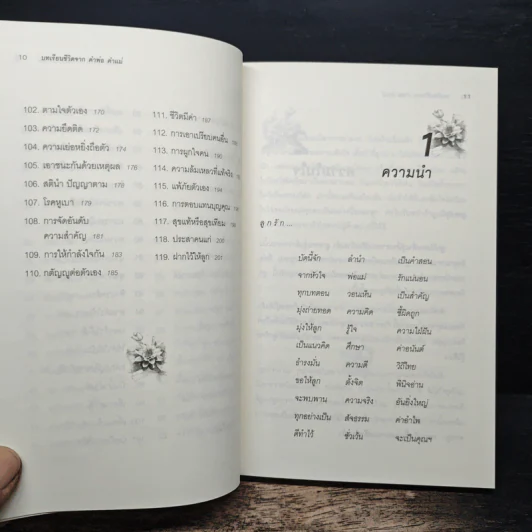 10 บทเรียนชีวิตจาก คำพ่อ คำแม่
102. ตามใจตัวเอง 170
103. ความยึดติด 172
104. ความเย่อหยิ่งถือตัว 174
105. เอาชนะกันด้วยเหตุผล 176
106. สตินำ ปัญญาตาม 178
107. โรคหูเบา 179
108. การจัดอันดับ
ความสำคัญ 181
109. การให้กำลังใจกัน 183
110. กตัญญูต่อตัวเอง 185
111. ชีวิตมีค่า 187
112. การเอาเปรียบคนอื่น
113. การผูกใจคน 190
114. ความล้มเหลวที่แท้จริง
115. แพ้ภัยตัวเอง 194
116. การตอบแทนบุญคุณ
117. สุขแท้หรือสุขเทียม
118. ประสาคนแก่ 200
119. ฝากไว้ให้ลูก 201
11
1
ความนำ
ลูกรัก...
บัดนี้จัก ดำนำ เป็นคำสอน
จากหัวใจ พ่อแม่ รักแน่นอน
ทุกบทตอน วอนเห็น เป็นสำคัญ
มุ่งถ่ายทอด ความคิด ชี้ผิดถูก
มุ่งให้ลูก รู้ใจ ความใฝ่ฝัน
เป็นแนวคิด ศึกษา ค่าอนันต์
ธำรงมั่น ความดี วิถีไทย
ขอให้ลูก ตั้งจิต พินิจอ่าน
จะพบพาน ความจริง อันยิ่งใหญ่
ทุกอย่างเป็น สัจธรรม ค่าอำไพ
ตีทำไว้ ชั่วเว้น จะเป็นคุณฯ